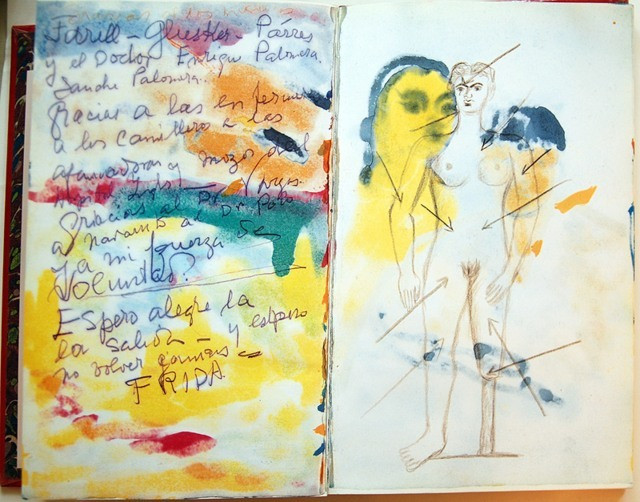 Farill - Glusker - Párres
y el Doctor Enrique Palomera
Sanche Palomera.
Gracias a las enfermeras
a los Camilleros a las
afanadoras y mozos del
Gracias al Dr.
a Navarro al Dr. Polo
y a mi fuerza de
Voluntad.
Espero alegre la
la salida - y espero
no volver jamas -
FRIDA